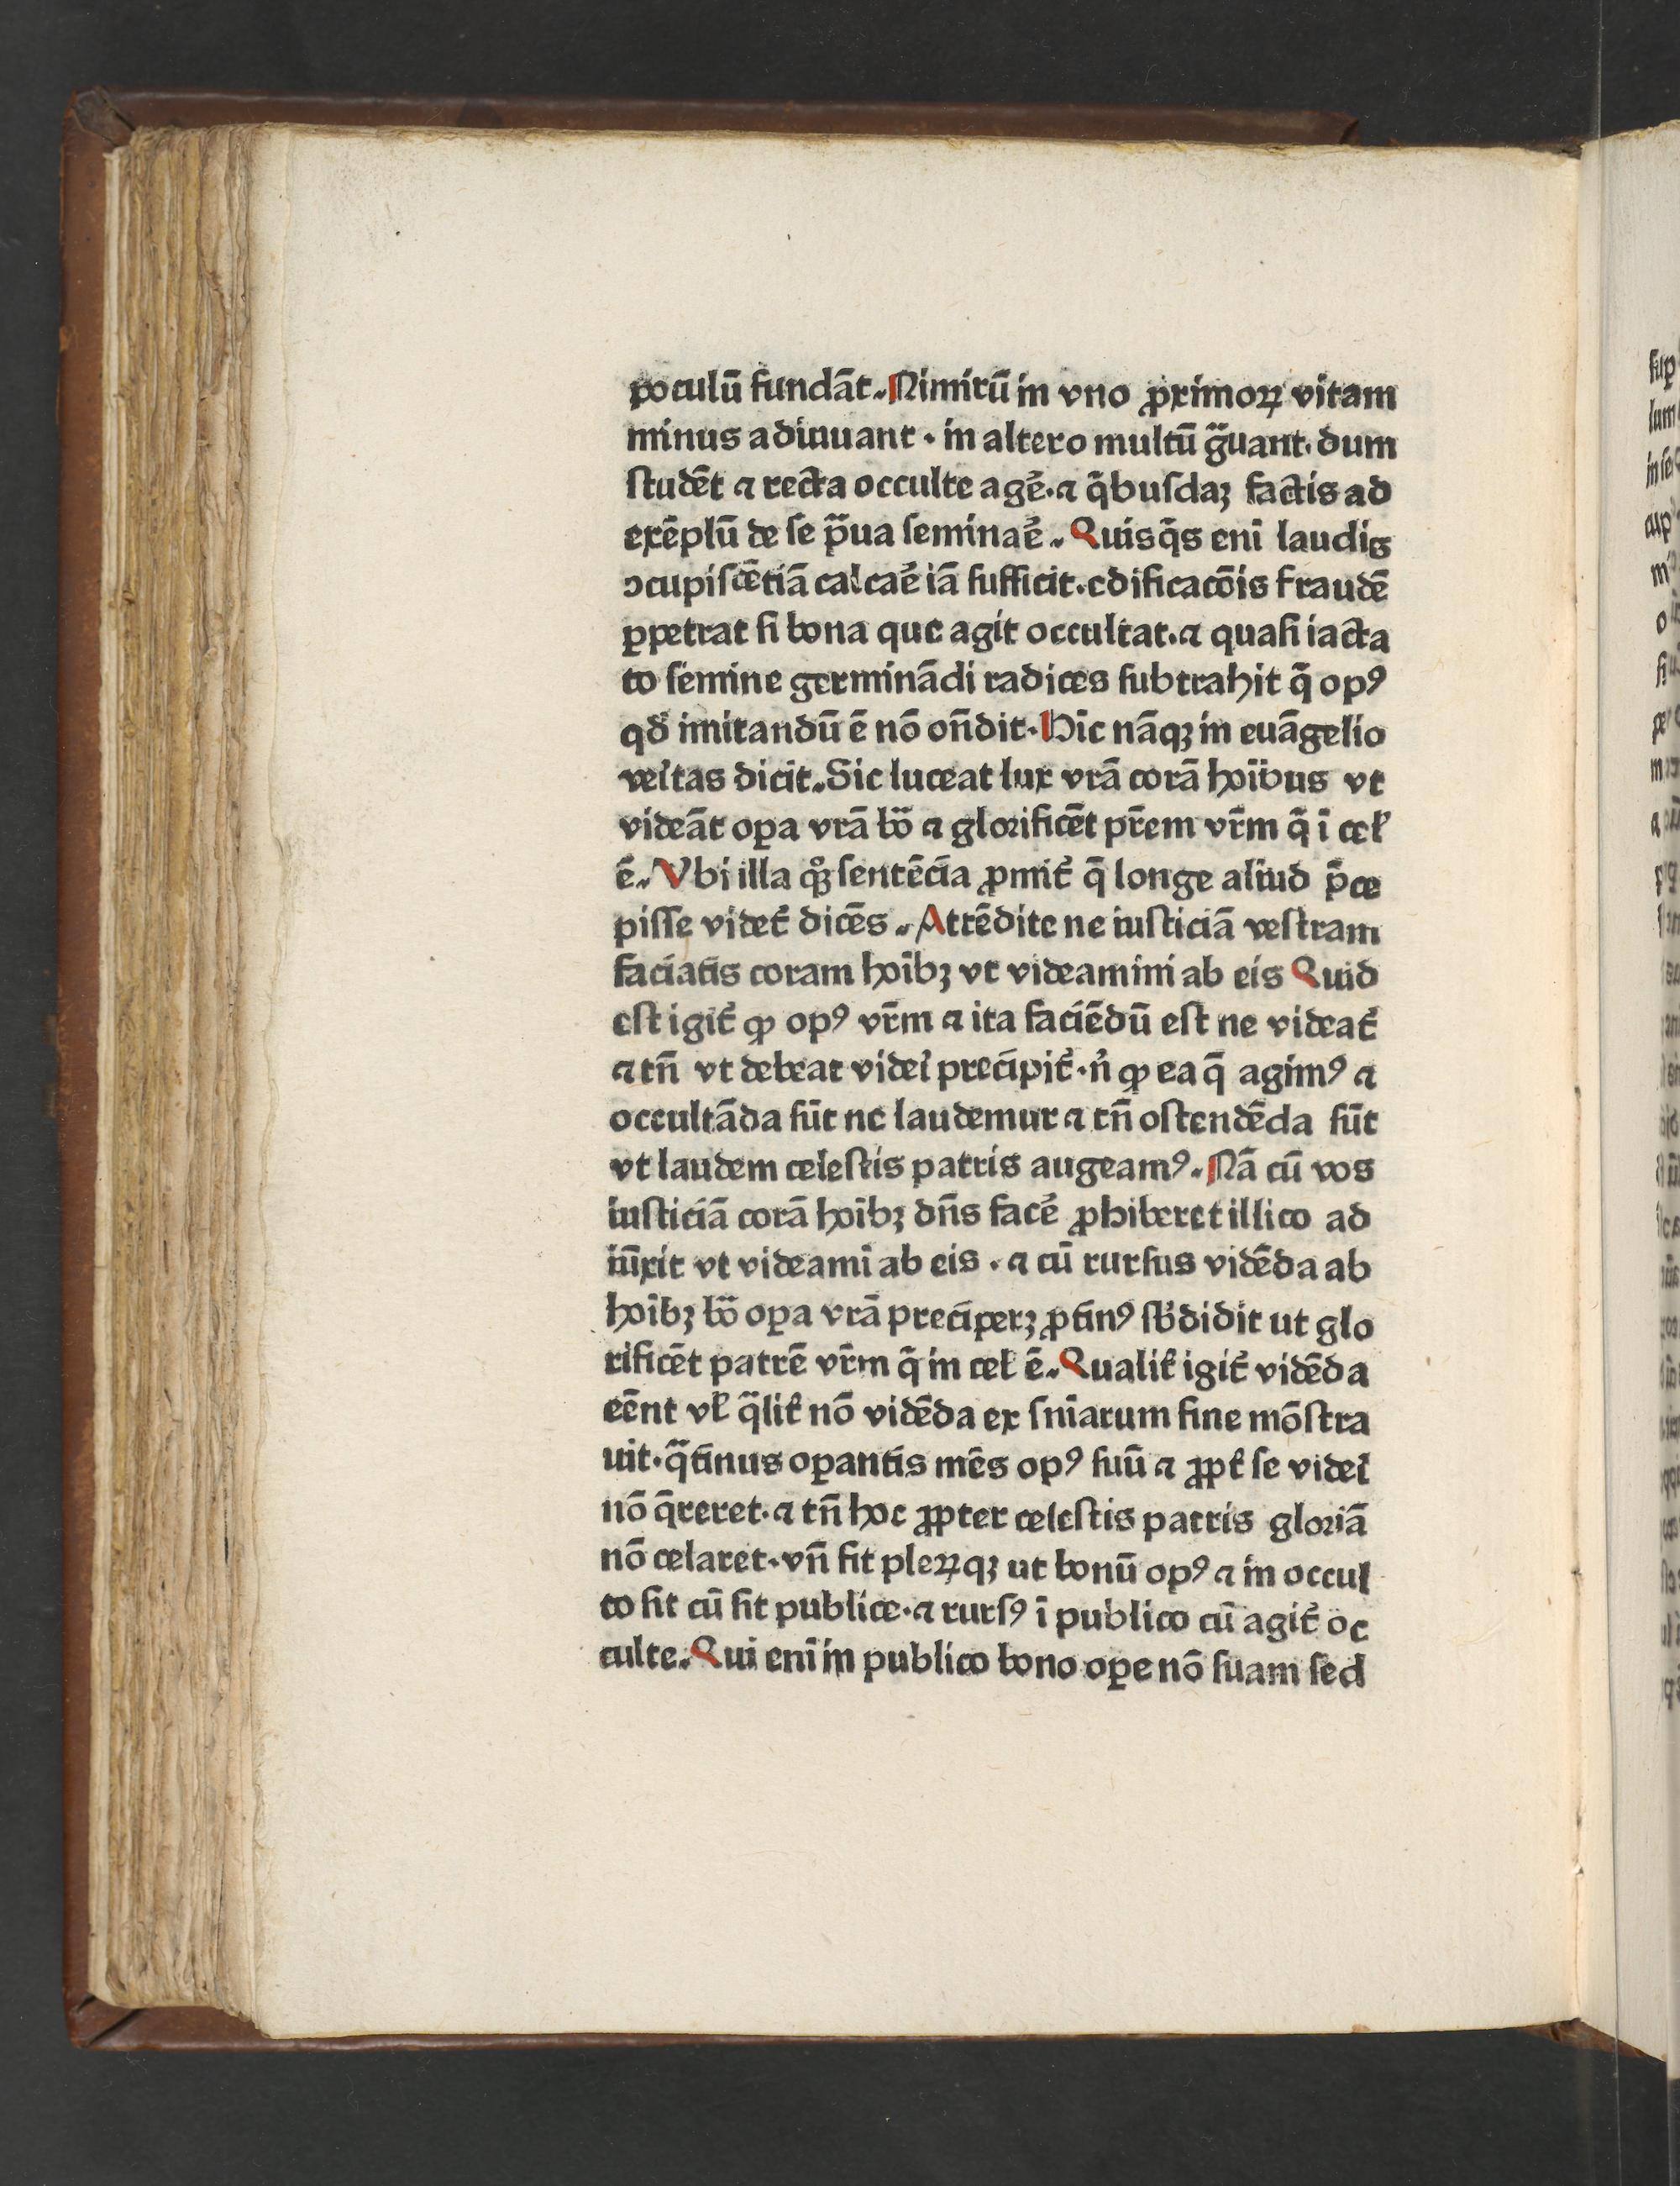 poculū fundāt. Nimirū in vno ꝓximoꝝ vitam
minus adiuuant · in altero multū gͣuant. dum
ſtudēt ⁊ recta occulte agē. ⁊ qͥbuſdaꝫ factis ad
exēplū de ſe pͣua ſeminaē. Quisqͥs eni laudis
ↄcupiſcētiā calcaē iā ſufficit. edificacōis fraudē
ꝑpetrat ſi bona que agit occultat. ⁊ quaſi iacta
to ſemine germinādi radices ſubtrahit q̄ opꝰ
qđ imitandū ē nō on̄dit. Hīc nāqꝫ in euāgelio
veītas dicit. Sic luceat lux vrā corā hoībus vt
videāt oꝑa vrā bo̎ ⁊ glorificēt pr̄em vr̄m q̄ ī cel̕
ē. Vbi illa qͦꝫ ſentēcia ꝓmit᷑ q̄ longe aliud p̄ce
piſſe videt᷑ dicēs. Attēdite ne iuſticiā veſtram
faciatis coram hoībꝫ vt videamini ab eis Quid
eſt igit᷑ ꝙ opꝰ vr̄m ⁊ ita faciēdū eſt ne videat᷑
⁊ tn̄ vt debeat videī precipit᷑. n̕ ꝙ ea q̄ agimꝰ ⁊
occultāda ſūt ne laudemur ⁊ tn̄ oſtendēda ſūt
vt laudem celeſtis patris augeamꝰ. Nā cū vos
iuſticiā corā hoībꝫ dn̄s facē ꝓhiberet illico ad
iūxit vt videamī ab eis. ⁊ cū rurſus vidēda ab
hoībꝫ bo̎ oꝑa vrā preciperꝫ ꝓtinꝰ ſb̕didit ut glo
rificēt patrē vr̄m q̄ in cel ē. Qualit᷑ igit᷑ vidēda
eēnt vl̕ qͣlit᷑ nō vidēda ex ſnīarum fine mōſtra
uit. qͣtinus oꝑantis mēs opꝰ ſuū ⁊ ꝓpt᷑ ſe videī
nō q̄reret. ⁊ tn̄ hoc ꝓpter celeſtis patris gloriā
nō celaret. vn̄ fit pleꝝqꝫ ut bonū opꝰ ⁊ in occul
to fit cū fit publice. ⁊ rurſꝰ ī publico cū agit᷑ oc
culte. Qui enī in publico bono oꝑe nō ſuam ſed